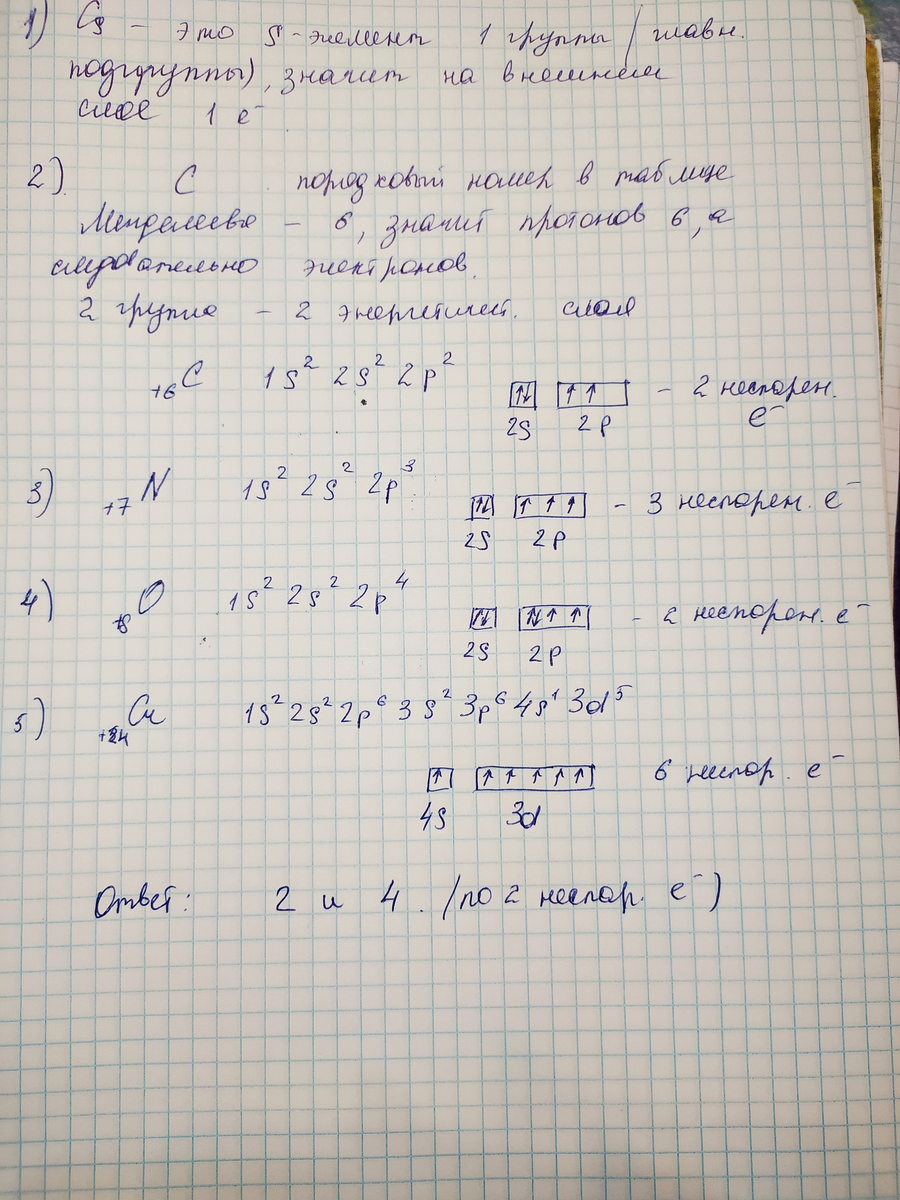 1) Cs - это s-элемент 1 группы (главн.
подгруппы), значит на внешнем
слое 1 e⁻
2) C порядковый номер в таблице
Менделеева - 6, значит протонов 6, а
следовательно электронов.
2 группа - 2 энергетич. слоя
₊₆C 1s² 2s² 2p² ↑↓ ↑ ↑ - 2 неспарен.
e⁻
2s 2p
3) ₊₇N 1s² 2s² 2p³ ↑↓ ↑ ↑ ↑ - 3 неспарен. e⁻
2s 2p
4) ₊₈O 1s² 2s² 2p⁴ ↑↓ ↑↓ ↑ ↑ - 2 неспарен. e⁻
2s 2p
5) ₊₂₄Cr 1s² 2s² 2p⁶ 3s² 3p⁶ 4s¹ 3d⁵
↑ ↑ ↑ ↑ ↑ ↑ 6 неспар. e⁻
4s 3d
Ответ: 2 и 4. (по 2 неспар. e⁻)